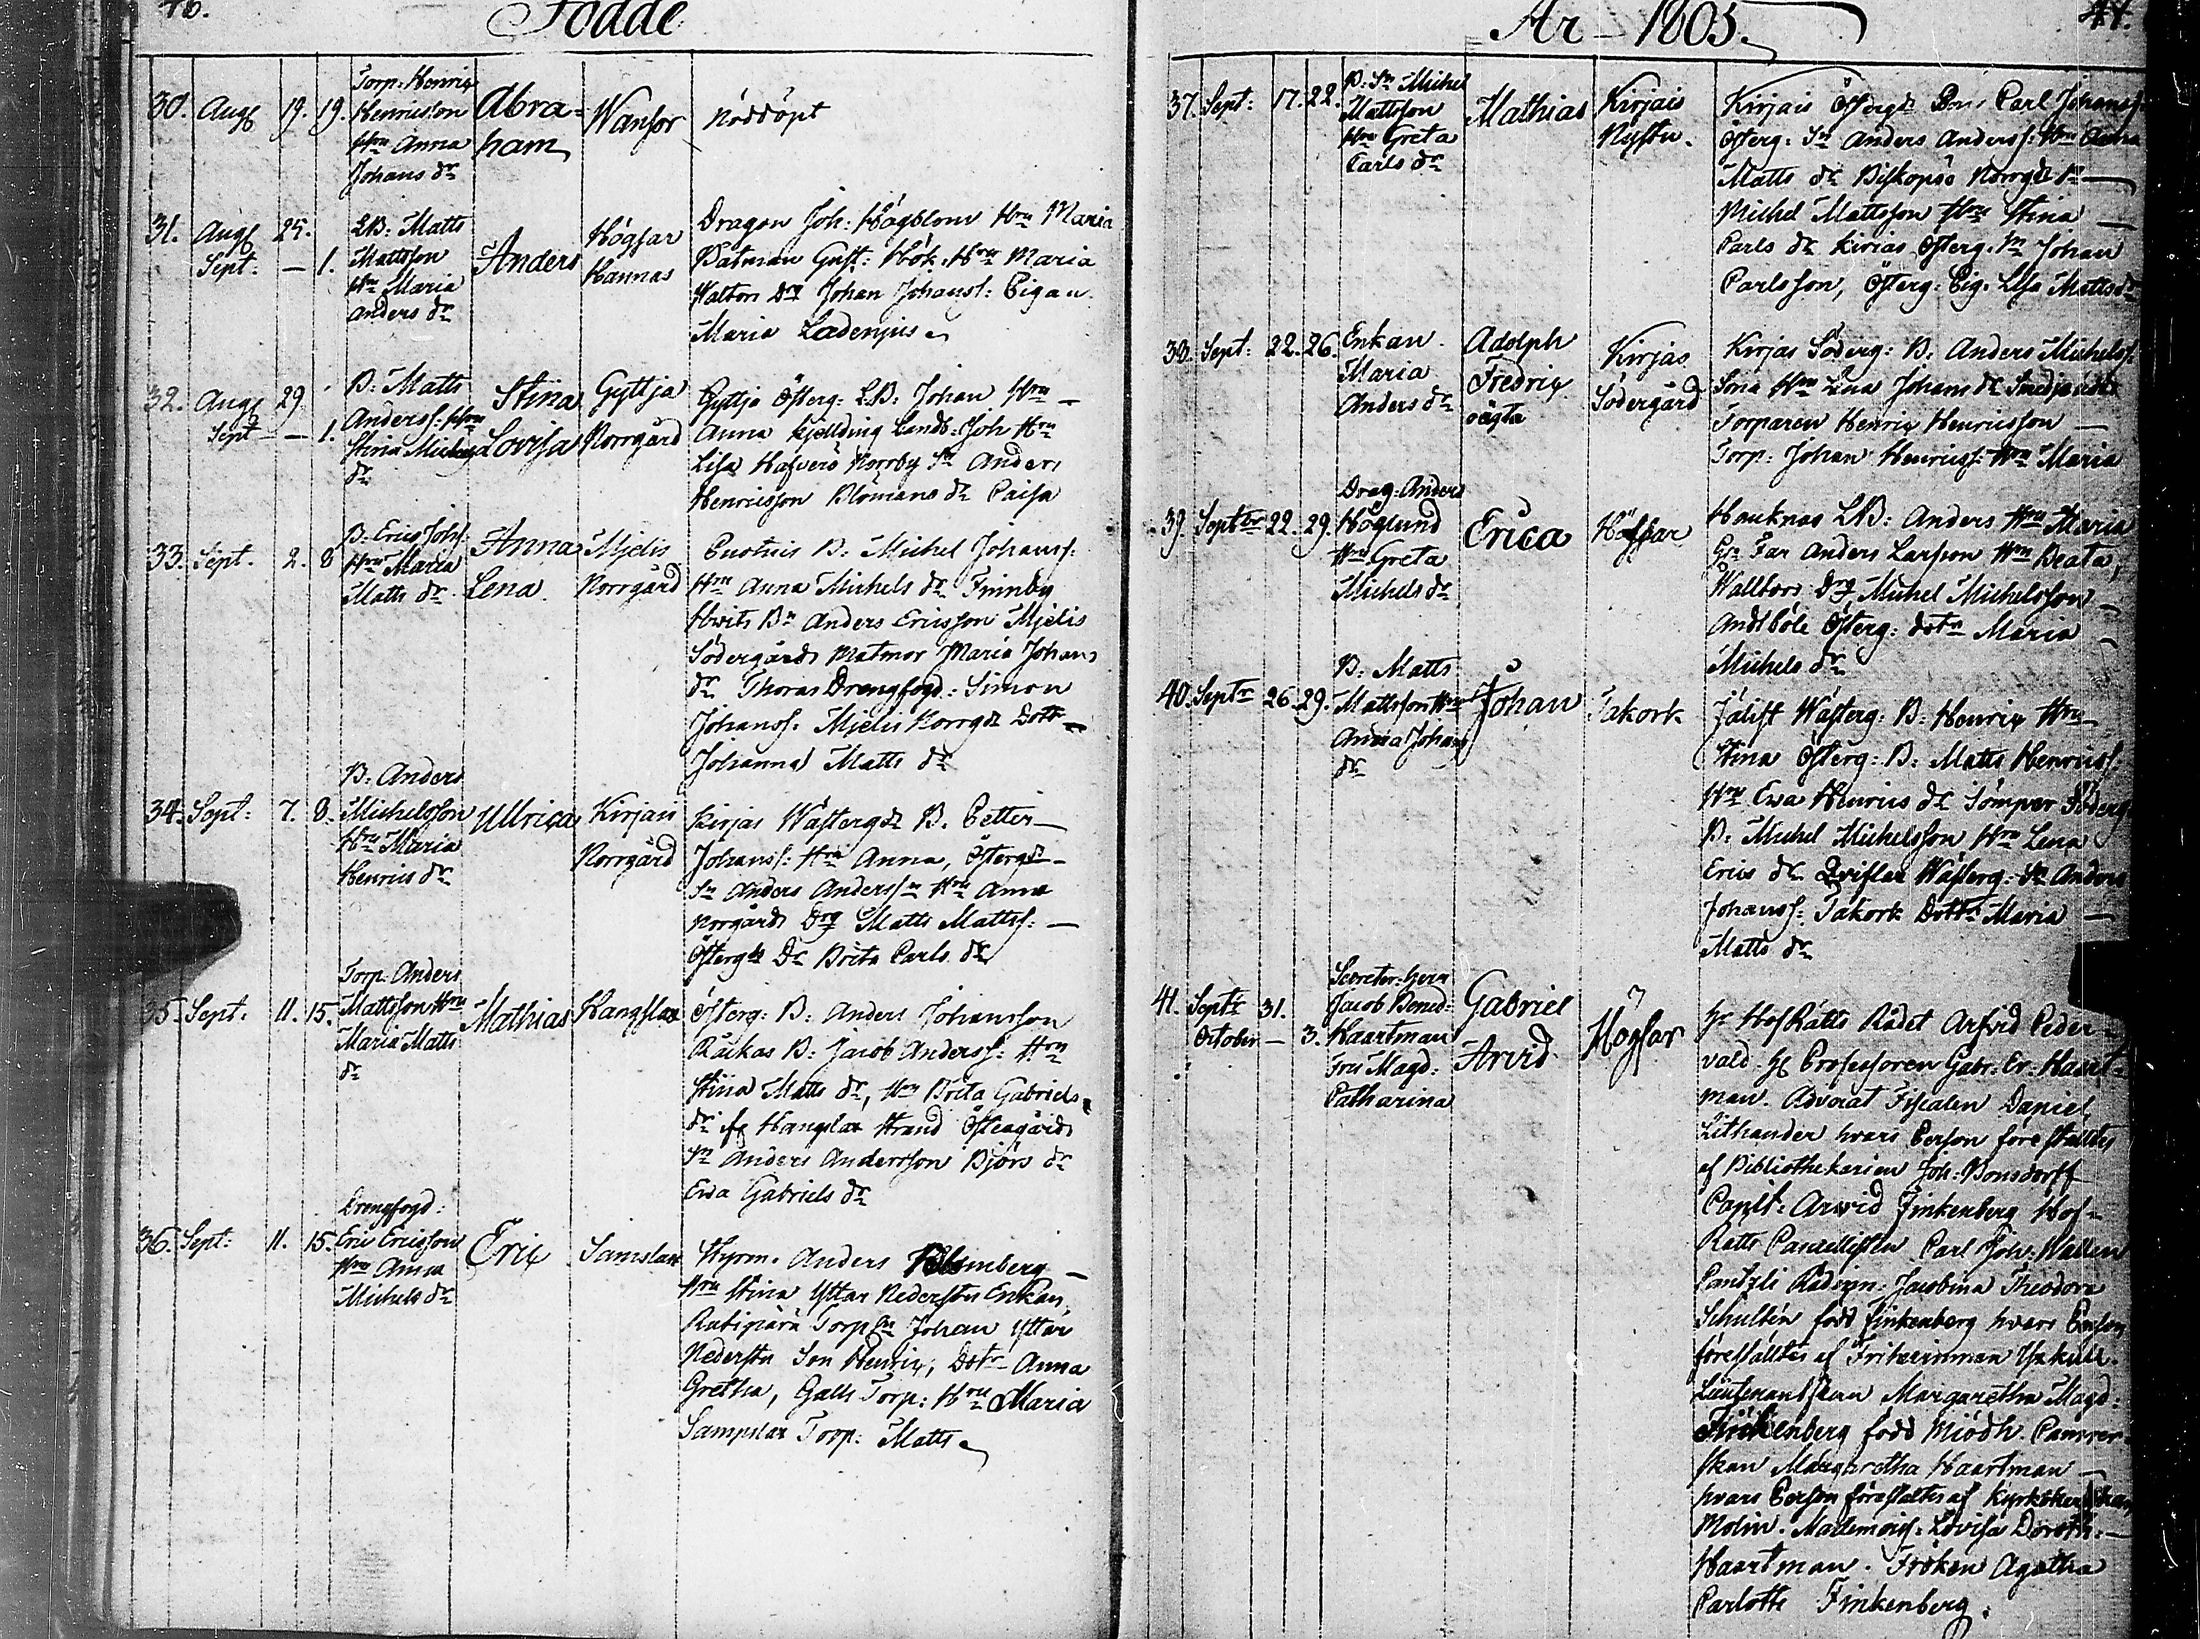 46.
Födde
30. Aug 19. 19. Torp: Henric Henricsson Hru Anna Johans dr Abraham Wansor nöddöpt
31. Aug 25. Sept: — 1. LB: Matts Mattsson Hru Maria Anders dr Anders Högsar Hannas
Dragon Joh: Högblom Hru Maria
Båtsman Gust: Hök Hru Maria
Johan Johanss: Pigan
Maria Ladenius
32. Aug 29. Sept — 1. B: Matts Anderss: Hru Stina Michels dr Stina Lovisa Gyttja Norrgård
Gyttja Österg: LB: Johan Hru —
Anna Landb: Joh Hru
Lisa Norrby Sn Anders
Henricsson dr Caisa
33. Sept. 2. 8 B: Eric Johs: Hru Maria Matts dr Anna Lena Mjelis Norrgård
B: Michel Johanss:
Hru Anna Michels dr Finnby
Bn Anders Ericsson Mjelis
Södergårds Matmor Maria Johans
dr Thoras Drengfogd: Simon
Johanss: Mjelis Norrgds Dott —
Johanna Matts dr
34. Sept: 7. 8. B: Anders Michelsson Hru Maria Henrics dr Ullrica Kirjais Norrgård
Kirjas Wästergds B. Petter —
Johanss: Hru Anna, Östergds —
Sn Anders Anderssn Hru Anna
Norgårds Drg Matts Mattss: —
Östergds Dr Brita Carls dr
35. Sept. 11. 15. Torp: Anders Mattsson Hru Maria Matts dr Mathias Hangslax
Österg: B: Anders Johansson
B: Jacob Anderss: Hru
Stina Matts dr, Hru Brita Gabriels
dr fr Hangslax Strand Östergårds
Sn Anders Andersson Björs dr
Ewa Gabriels dr
36. Sept: 11. 15. Drengfogd: Eric Ericsson Hru Anna Michels dr Eric Samslax
Styrm. Anders Blomberg —
Hru Stina Yttar Nederstu Enkan
Torp Johan Yttar
Nederstu Son Henric, Dotr Anna
Gretha, Galts Torp: Hru Maria
Samslax Torp: Matts
År — 1805.
47.
37. Sept: 17. 22. B: Sn Michel Mattsson Hru Greta Carls dr Mathias Kirjais Nystu.
Kirjais Östergds Carl Johanss:
Österg: Sn Anders Anderss: Hru Anna
Matts dr Biskopsö Norrgds Sn —
Michel Mattsson Hru Stina —
Carls dr Kirias Österg. Sn Johan
Carlsson, Österg: Pig: Lisa Matts dr
38. Sept: 22. 26. Enkan Maria Anders dr Adolph Fredric oägta Kirjas Södergård
Kirjas Söderg: B. Anders Michelss:
Sons Hru Lena Johans dr
Torparen Henric Henricsson —
Torp: Johan Henricss: Hru Maria
39. Septbr 22. 29. Drag: Anders Höglund Hru Greta Michels dr Erica Högsar
LB: Anders Hru Maria
Far Anders Larsson Hru Beata,
Drg Michel Michelsson —
Andsböle Österg: dotr Maria —
Michels dr
40. Septr 26. 29. B: Matts Mattsson Hru Anna Johans dr Johan Takork
Jälist Wästerg: B: Henric Hru
Stina Österg: B: Matts Henricss:
Hru Ewa Henrics dr Sömper Söderg
B: Michel Michelsson Hru Lena
Erics dr Qvislax Wästerg: Sn Anders
Johanss: Takork Dottr Maria —
Matts dr
41. Septr 31. October — 3. Secreter: Herr Jacob Bened: Haartman Fru Magd: Catharina Gabriel Arvid Högsar
Hr HofRätts Rådet Arfvid Peder-
vald. Hr Professoren Gabr: Er: Haart-
man. Advocat Fiscalen Daniel
Lithander hvars Person föreställtes
af Bibliothekarien Joh: Bonsdorff
Capit: Arwid Finkenberg Hof-
Rätts Cancellisten Carl Joh: Wallen
Cantzli Rådinn: Jacobina Theodora
Schultén född Finkenberg hvars Person
föreställtes af Friherinnan Yxkull.
Lieutenantskan Margaretha Magd:
Finkenberg född Miödh. Camrer-
skan Margaretha Haartman —
hvars Person föreställtes af
Molin. Mademois: Lovisa Doroth: —
Haartman. Fröken Agatha
Carlotte Finkenberg.